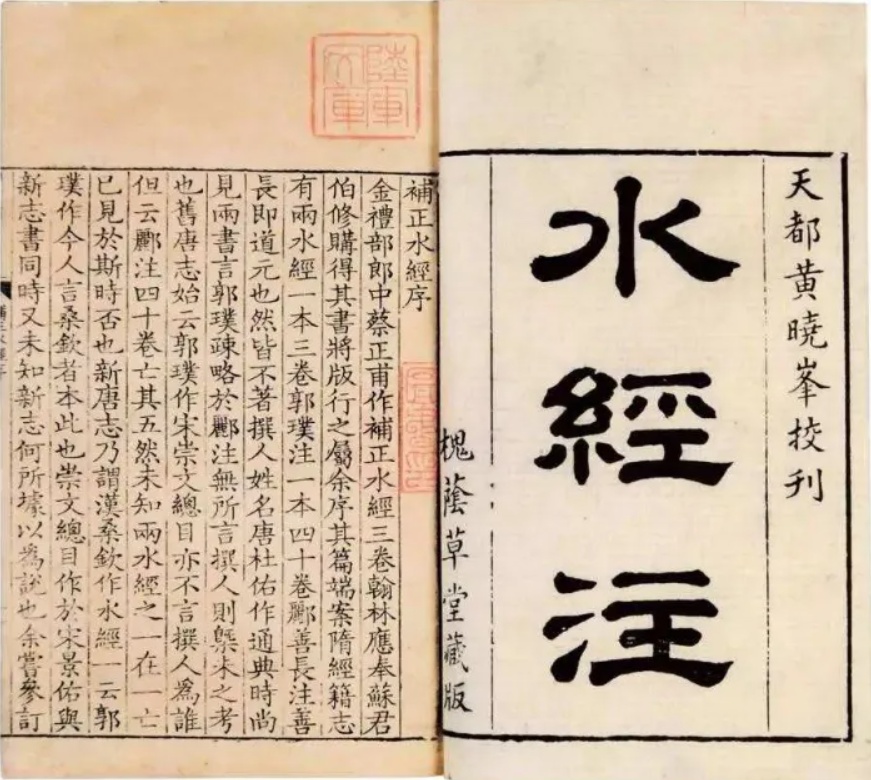 天都黄曉峯挍刊
水經注
槐蔭草堂藏版
補正水經序
金禮部郎中蔡正甫作補正水經三卷翰林應奉蘇君
伯修購得其書將版行之屬余序其篇端案隋經籍志
有兩水經一本三卷郭璞注一本四十卷酈善長注善
長即道元也然皆不著撰人姓名唐杜佑作通典時尚
見兩書言郭璞疎略於酈注無所言撰人則槩未之考
也舊唐志始云郭璞作宋崇文總目亦不言撰人為誰
但云酈注四十卷亡其五然未知兩水經之一在一亡
已見於斯時否也新唐志乃謂漢桑欽作水經一云郭
璞作今人言桑欽者本此也崇文總目作於宋景佑與
新志書同時又未知新志何所㩀以為說也余嘗參訂